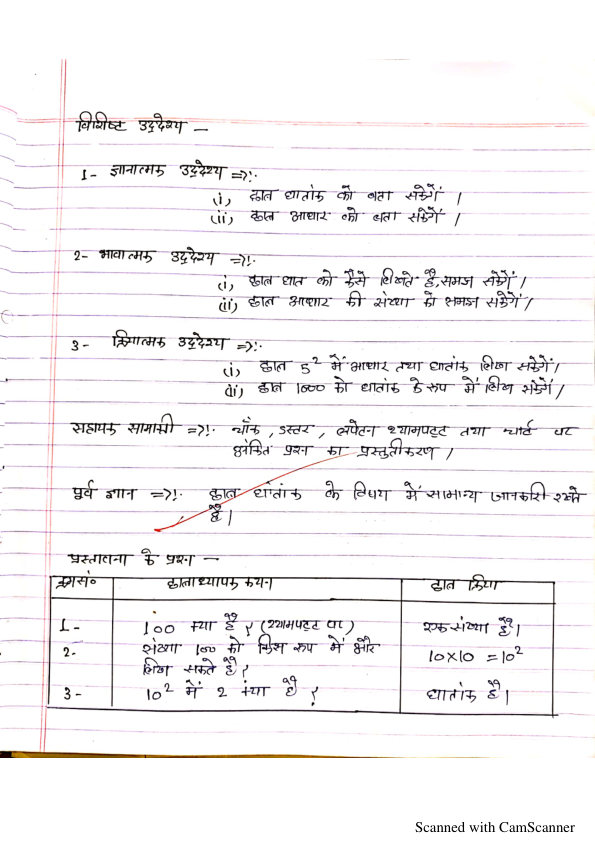 विशिष्ट उद्देश्य —
1- ज्ञानात्मक उद्देश्य =>:-
(i) छात्र घातांक को बता सकेगें ।
(ii) छात्र आधार को बता सकेगें ।
2- भावात्मक उद्देश्य =>:-
(i) छात्र घात को कैसे लिखते है, समझ सकेगें ।
(ii) छात्र आधार की संख्या को समझ सकेगें ।
3- क्रियात्मक उद्देश्य =>:-
(i) छात्र 5² में आधार तथा घातांक लिख सकेगें ।
(ii) छात्र 1000 को घातांक के रूप में लिख सकेगें ।
सहायक सामाग्री =>:- चॉक, डस्टर, लपेटन श्यामपट्ट तथा चार्ट पर
अंकित प्रश्न का प्रस्तुतीकरण ।
पूर्व ज्ञान =>:- छात्र घांतांक के विषय में सामान्य जानकारी रखते
है ।
प्रस्तावना के प्रश्न —
क्रम सं० छात्राध्यापक कथन छात्र क्रिया
1- 100 क्या है ? (श्यामपट्ट पर) एक संख्या है ।
2- संख्या 100 को किस रूप में और
लिख सकते है ? 10×10 = 10²
3- 10² में 2 क्या है ? घातांक है ।
Scanned with CamScanner